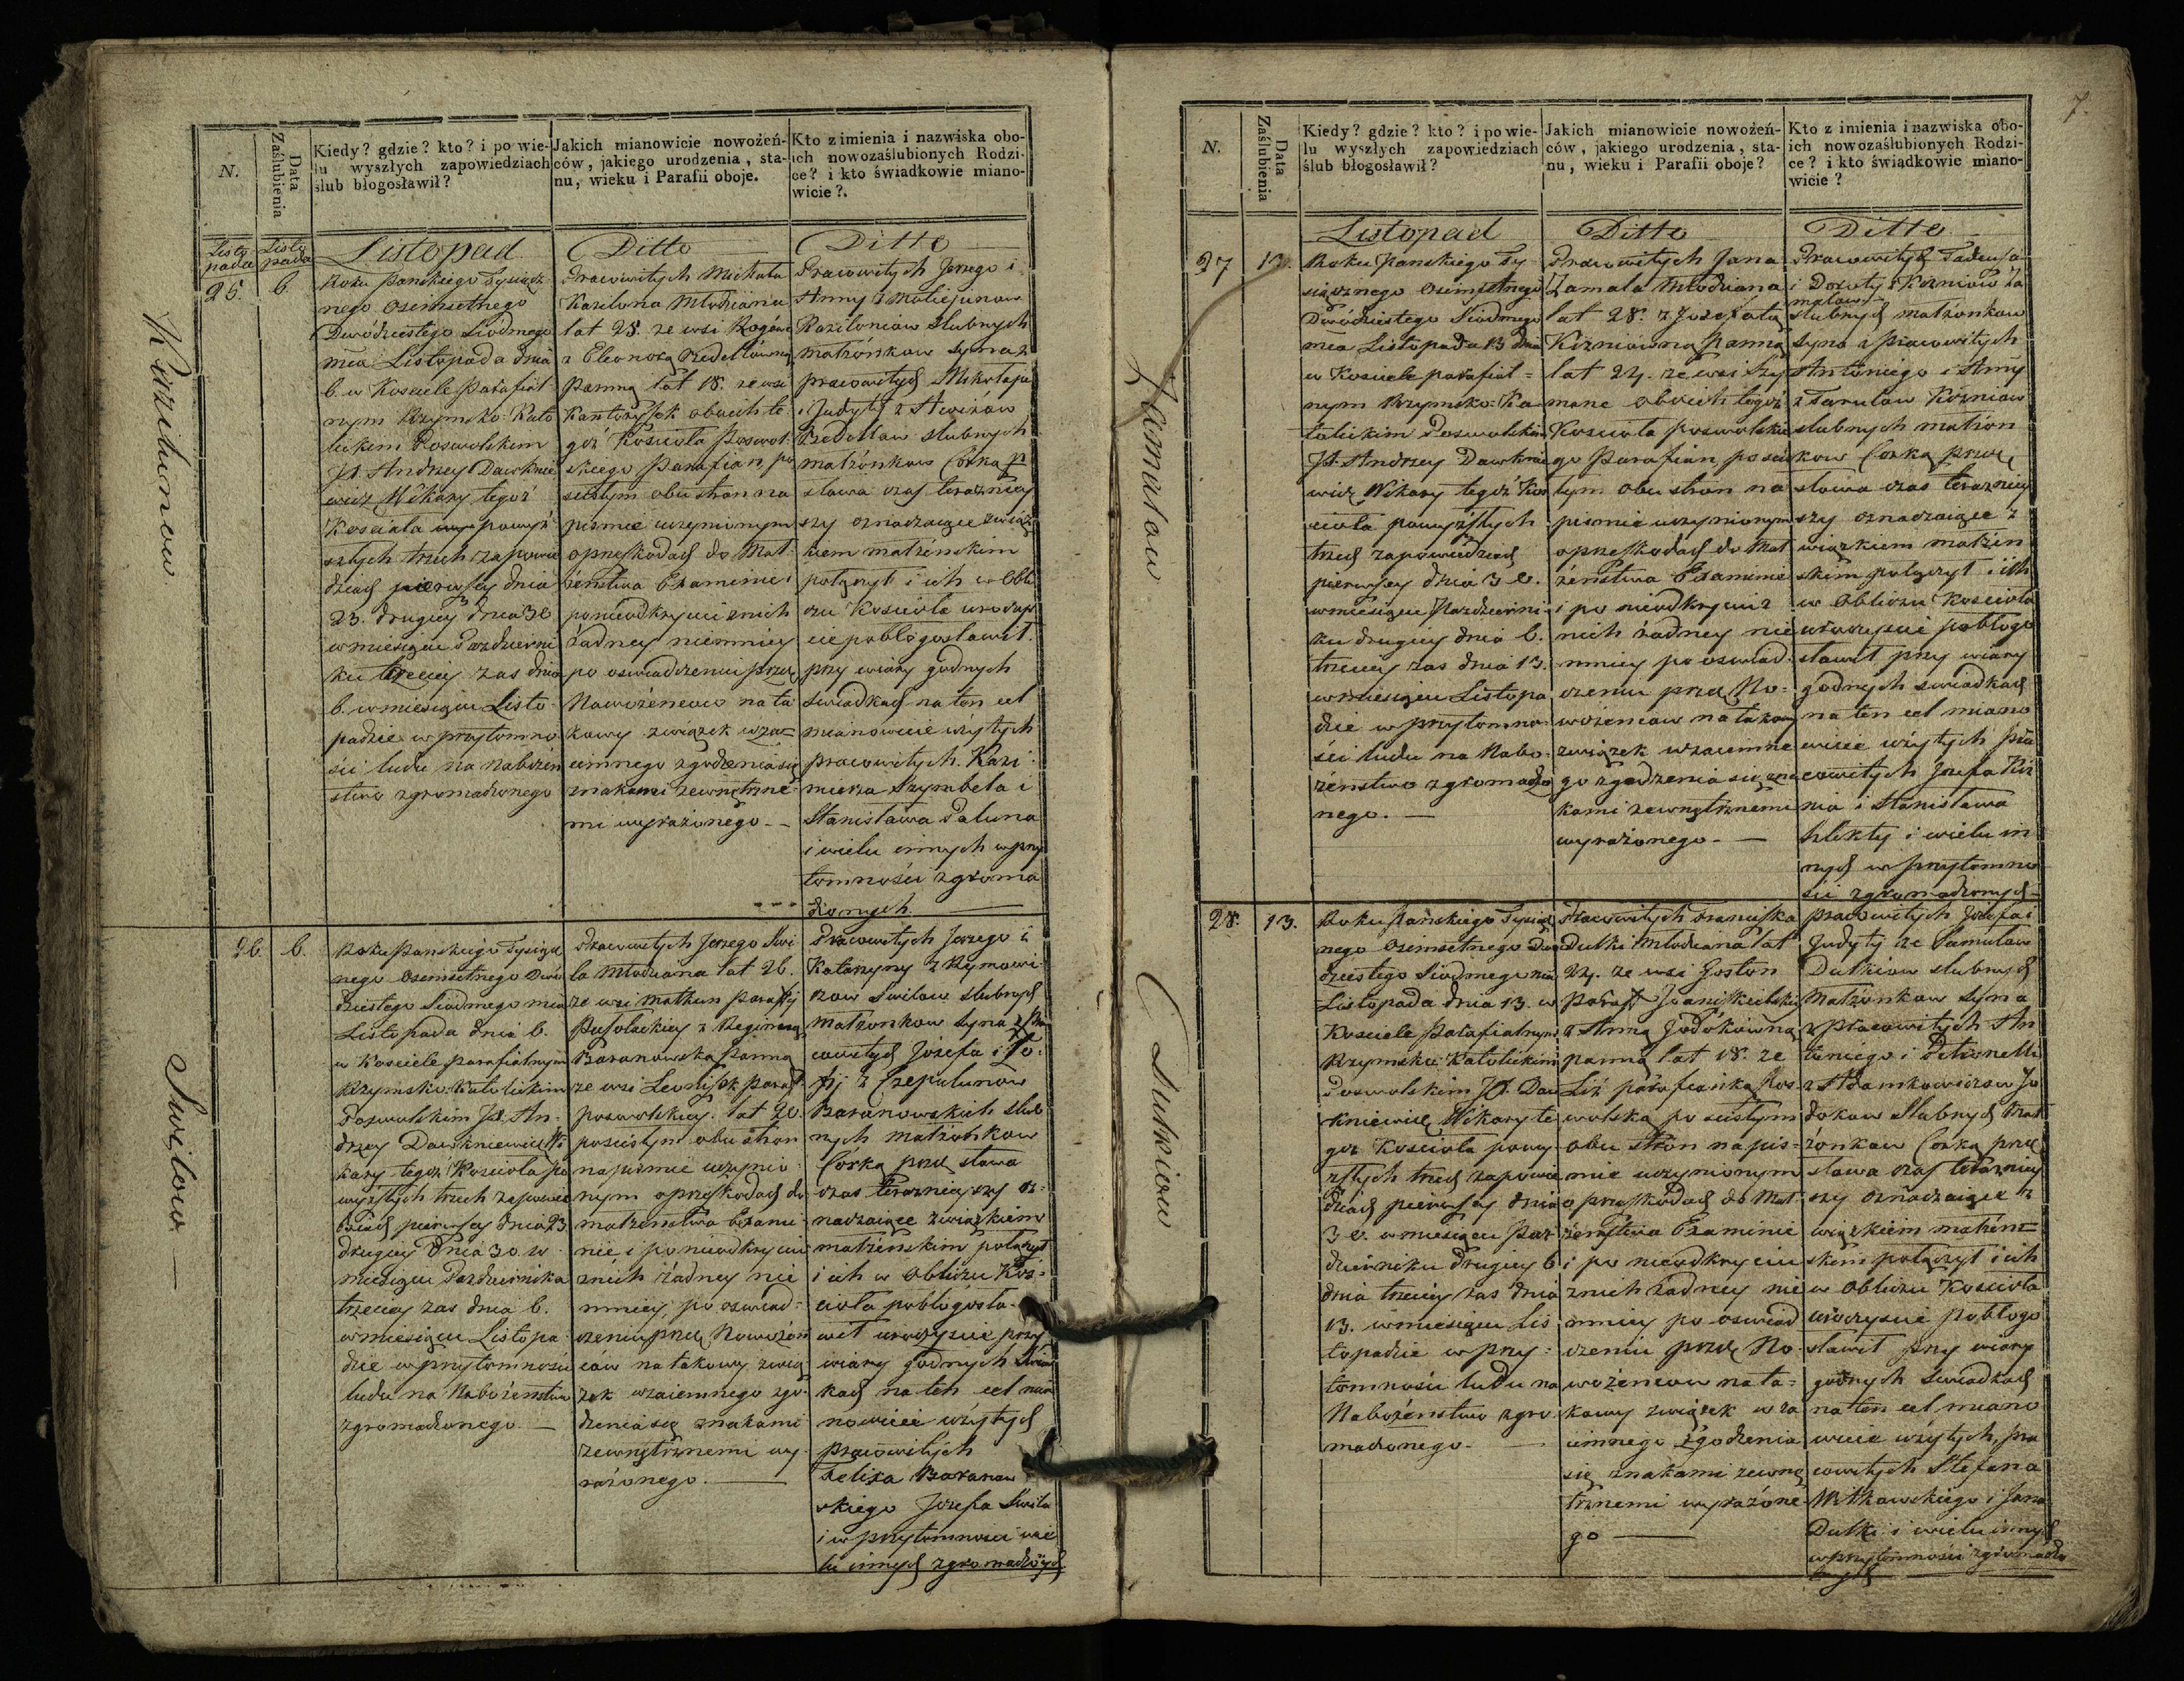 N.
Data Zaślubienia
Kiedy? gdzie? kto? i po wie-
lu wyszłych zapowiedziach
ślub błogosławił?
Jakich mianowicie nowożeń-
ców, jakiego urodzenia, sta-
nu, wieku i Parafii oboje.
Kto z imienia i nazwiska obo-
ich nowozaślubionych Rodzi-
ce? i kto świadkowie miano-
wicie?.
Listo
pada
Listo
pada
Listopad
Ditto
Ditto
25.
6.
Roku Pańskiego Tysiącz
nego osiemsetnego
Dwódziestego Siódmego
mca Listopada dnia
6. w Kosciele Parafial
nym Rzymsko-Kato
lickim Poswolskim
Jd. Andrzey Dawknie
wicz Wikary tegoż
Kosciała powyż
szłych trzech zapowie
dziach pierwszey dnia
23. drugiey dnia 30
w miesiącu Pazdzierni
ku trzeciey zas dnia
6. w miesiącu Listo
padzie w przytomno
ści ludu na nabożeń
stwo zgromadzonego
Pracowitych Michała
Kazilona Młodziana
lat 28. ze wsi
z Eleonorą
Panną lat 18. ze wsi
oboich te
goż Kościoła Poswol
skiego Parafian, po
scisłym obu stron na
pismie uczynionym
o przeszkodach do Mał
żeństwa Examinie i
po nieodkryciu z nich
żadney niemniey
po oswiadczeniu przez
Nowożeńcow na ta
kowy związek wza
iemnego zgodzenia się
znakami zewnętrzne
mi wyrażonego. –
Pracowitych Jerzego i
Anny z Maciejunow
Kaziloniow Slubnych
małżónkow Syna z
pracowitych Mikołaja
i Judyty z
slubnych
małżónkow Córką p
słowa czas teraźniey
szy oznaczaiące związ
kiem małżeńskim
połączył i ich w obli
czu Kościoła uroczys
cie pobłogosławił.
przy wiary godnych
swiadkach na ten cel
mianowicie użytych
pracowitych. Kazi
mierza Szymbela i
Stanisława Paluna
i wielu innych w przy
tomności zgroma
dzonych
26.
6.
Roku Pańskiego Tysiącz
nego osiemsetnego Dwó
dziestego Siódmego mca
Listopada dnia 6.
w Kosciele parafialnym
Rzymsko-Katolickim
Poswolskim Jd. An
drzey Dawkniewicz Wi
kary tegoż Kosciola po
wyszłych trzech zapowie
dziach pierwszey dnia 23
drugiey dnia 30. w
miesiącu Pazdziernika
trzeciey zas dnia 6.
w miesiącu Listopa
dzie w przytomności
ludu na Nabożeństwo
zgromadzonego. –
Pracowitych Jerzego Swi
la Młodziana lat 26.
ze wsi Matkun Parafij
Puszolackiey z Reginą
Baranowską Panną
ze wsi Paraf
poswolskiey. lat 20.
po scisłym obu stron
na pismie uczynio
nym o przeszkodach do
małżeństwa Exami
nie i po nieodkryciu
z nich żadney nie
mniey po oswiad
czeniu przez Nowożeń
ców na takowy zwią
zek wzaiemnego zgo
dzenia się znakami
zewnętrznemi wy
rażonego. –
Pracowitych Jerzego i
Katarzyny z Rymowi
czow Swilow Slubnych
Małżonkow Syna z Pra
cowitych Józefa i
z Czepulunow
Baranowskich Slub
nych małżonkow
Córką przez słowa
czas teraźnieyszy oz
naczaiące związkiem
małżeńskim połączył
i ich w obliczu Koś
cioła pobłogosła
wił uroczyscie przy
wiary godnych Swiad
kach na ten cel mia
nowicie użytych
pracowitych
Felixa Baranow
skiego Jozefa Swila
i w przytomności wie
lu innych zgromadzonych
Kazilunow
Swilow –
7.
N.
Data Zaślubienia
Kiedy? gdzie? kto? i po wie-
lu wyszłych zapowiedziach
ślub błogosławił?
Jakich mianowicie nowożeń-
ców, jakiego urodzenia, sta-
nu, wieku i Parafii oboje?
Kto z imienia i nazwiska obo-
ich nowozaślubionych Rodzi-
ce? i kto świadkowie miano-
wicie?
Listopad
Ditto
Ditto
27
13.
Roku Pańskiego Ty
siącznego Osiemsetnego
Dwódziestego Siodmego
mca Listopada 13 dnia
w Kosciele parafial
nym Rzymsko-Ka
tolickim Poswolskim
Jd. Andrzey Dawknie
wicz Wikary tegoż Kos
cioła powyszłych
trzech zapowiedziach
pierwszey dnia 30.
w miesiącu Pazdzierni
ku drugiey dnia 6.
trzeciey zas dnia 13.
w miesiącu Listopa
dzie w przytomno
ści ludu na Nabo
żeństwo zgromadzo
nego. –
Pracowitych Jana
Zamala Młodziana
lat 28. z Jozefatą
Kozniowną Panną
lat 24. ze wsi Szy
mane oboich tegoż
Kosciola poswolskie
go Parafian, po scis
łym obu stron na
pismie uczynionym
o przeszkodach do Mał
żeństwa Examinie
i po nieodkryciu z
nich żadney nie
mniey po oswiad
czeniu przez No
wożeńcow na takowy
związek wzaiemne
go zgodzenia się zna
kami zewnętrznemi
wyrażonego. –
Pracowitych Tadeusza
i Doroty z Kozniow Za
malow
slubnych małżónkow
Syna z pracowitych
Antoniego i Anny
z Kozniow
slubnych małżon
kow Corką przez
słowa czas teraźniey
szy oznaczaiące z
wiązkiem małżeń
skim połączył i ich
w obliczu Kosciola
uroczyscie pobłogo
sławił przy wiary
godnych swiadkach
na ten cel miano
wicie użytych pra
cowitych Jozefa Koz
nia i Stanisława
Szlekty i wielu in
nych w przytomno
ści zgromadzonych –
28.
13.
Roku Pańskiego Tysiącz
nego Osiemsetnego Dwó
dziestego Siódmego mca
Listopada dnia 13. w
Kosciele Parafialnym
Rzymsko-Katolickim
Poswolskim Jd. Daw
kniewicz Wikary te
goż Kosciola powy
szłych trzech zapowie
dziach pierwszey dnia
30. w miesiącu Paz
dzierniku drugiey 6
dnia trzeciey zas dnia
13. w miesiącu Lis
topadzie w przy
tomności ludu na
Nabożeństwo zgro
madzonego. –
Pracowitych Franciszka
Dulki Młodziana lat
24. ze wsi Goston
Paraf Joaniszkielskiey
z Anną Jodokowną
panną lat 18. ze
parafianką Pos
wolską po scisłym
obu stron na pis
mie uczynionym
o przeszkodach do Mał
żeństwa Examinie
i po nieodkryciu
z nich żadney nie
mniey po oswiad
czeniu przez No
wożeńcow na ta
kowy związek wza
iemnego zgodzenia
się znakami zewnę
trznemi wyrażone
go –
Pracowitych Józefa i
Judyty ze Samulow
Dulkiow slubnych
Małżonkow Syna
z Pracowitych An
toniego i Petronelli
z Adamkowiczow Jo
dokow Slubnych Mał
żonkow Corką przez
słowa czas teraźniey
szy oznaczaiące z
wiązkiem małżeń
skim połączył i ich
w obliczu Kosciola
uroczyscie pobłogo
sławił przy wiary
godnych Swiadkach
na ten cel miano
wicie użytych, pra
cowitych Stefana
Witkowskiego i Jana
Dulki i wielu innych
w przytomności zgromadzo
nych
Zamalow
Dulkiow